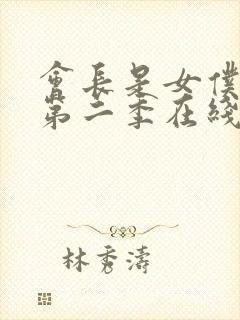 會長是女僕
第二季在綫
林秀濤